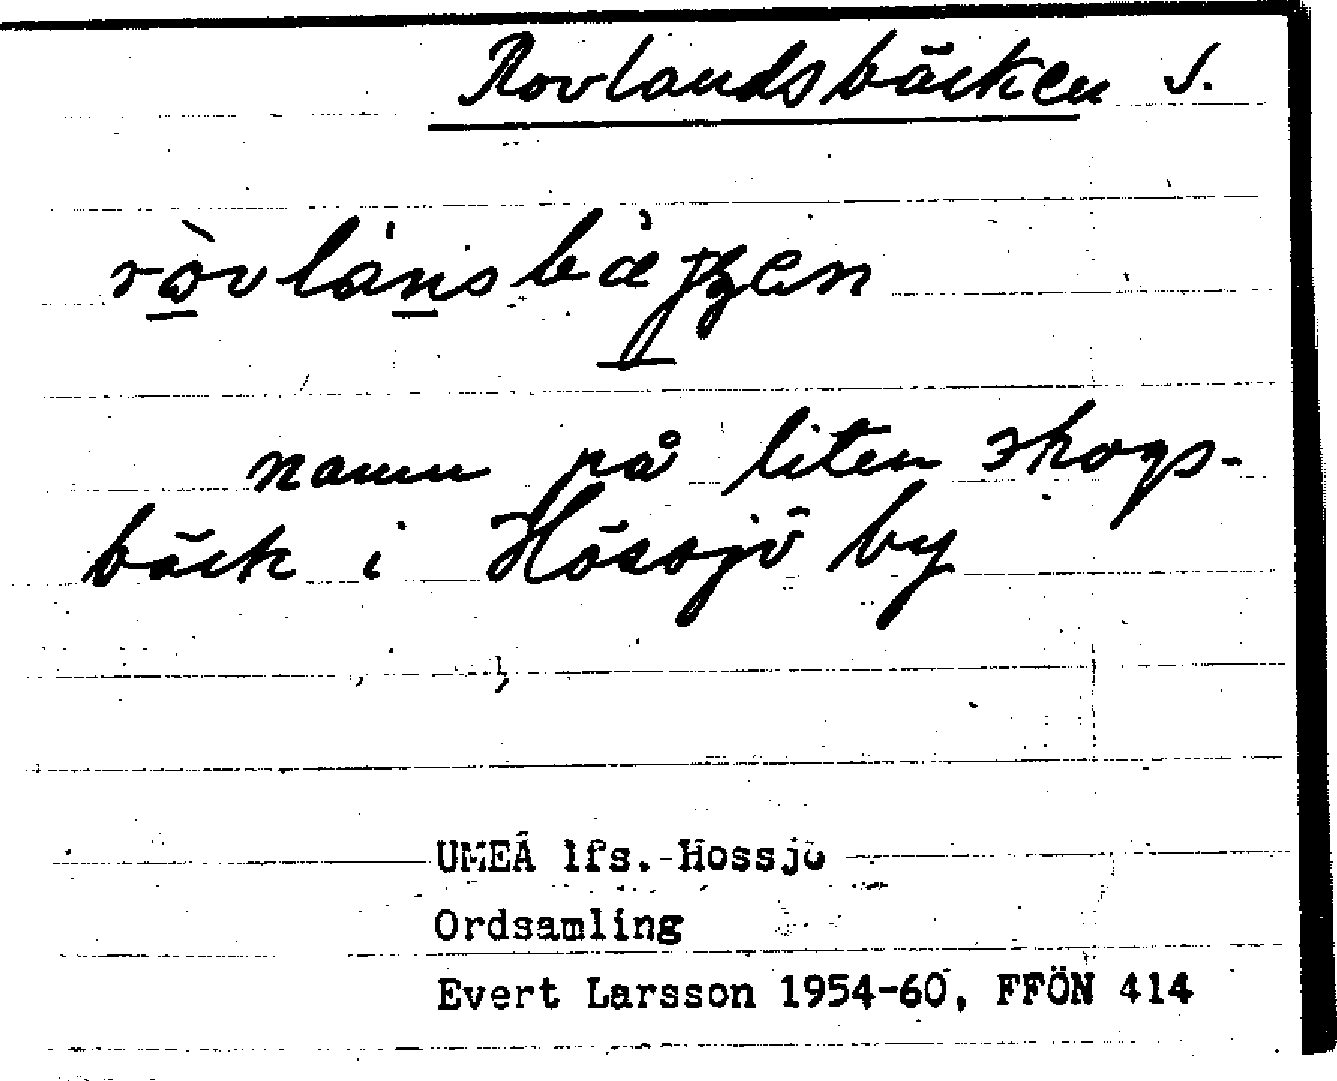 Rovlandsbäcken s.
ròvlánsbàjʒen
namn på liten skogs-
bäck i Hössjö by
UMEÅ lfs. Hössjö
Ordsamling
Evert Larsson 1954-60, FFÖN 414